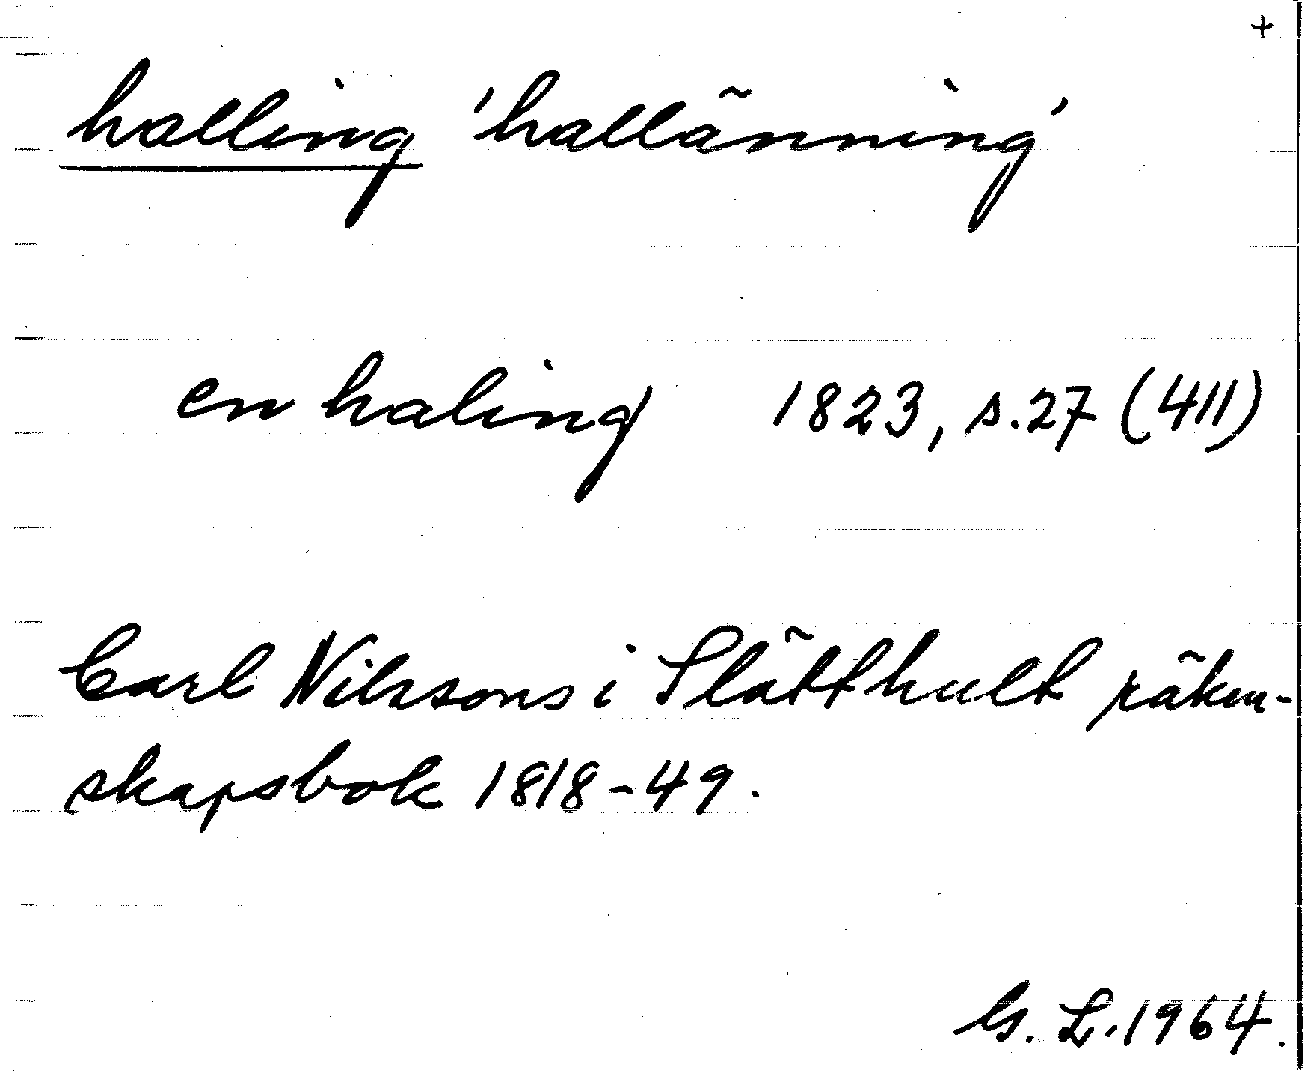 +
halling 'hallänning'
en haling 1823, s. 27 (411)
Carl Nilssons i Slätthult räken-
skapsbok 1818-49.
G. L. 1964.